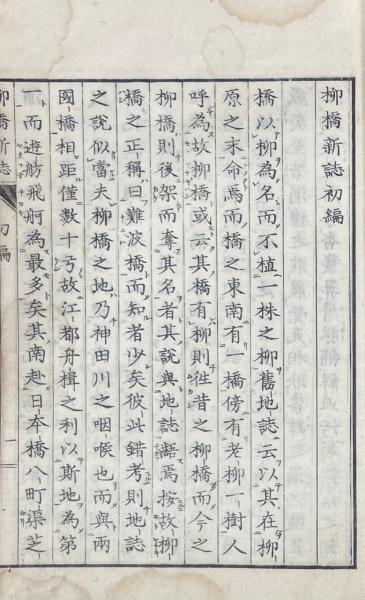 柳橋新誌初編
橋以柳為名而不植一株之柳舊地誌云以其在柳
原之末命焉而橋之東南有一橋傍有老柳一樹人
呼為故柳橋或云其橋有柳則往昔之柳橋而今之
柳橋則後架而奪其名者其說與地誌齟焉按故柳
橋之正稱曰難波橋而知者少矣彼此錯考則地誌
之說似當夫柳橋之地乃神田川之咽喉也而與兩
國橋相距僅數十弓故江都舟楫之利以斯地為第
一而遊舫飛舸為最多矣其南赴日本橋八町渠芝
柳橋新誌 初編 一